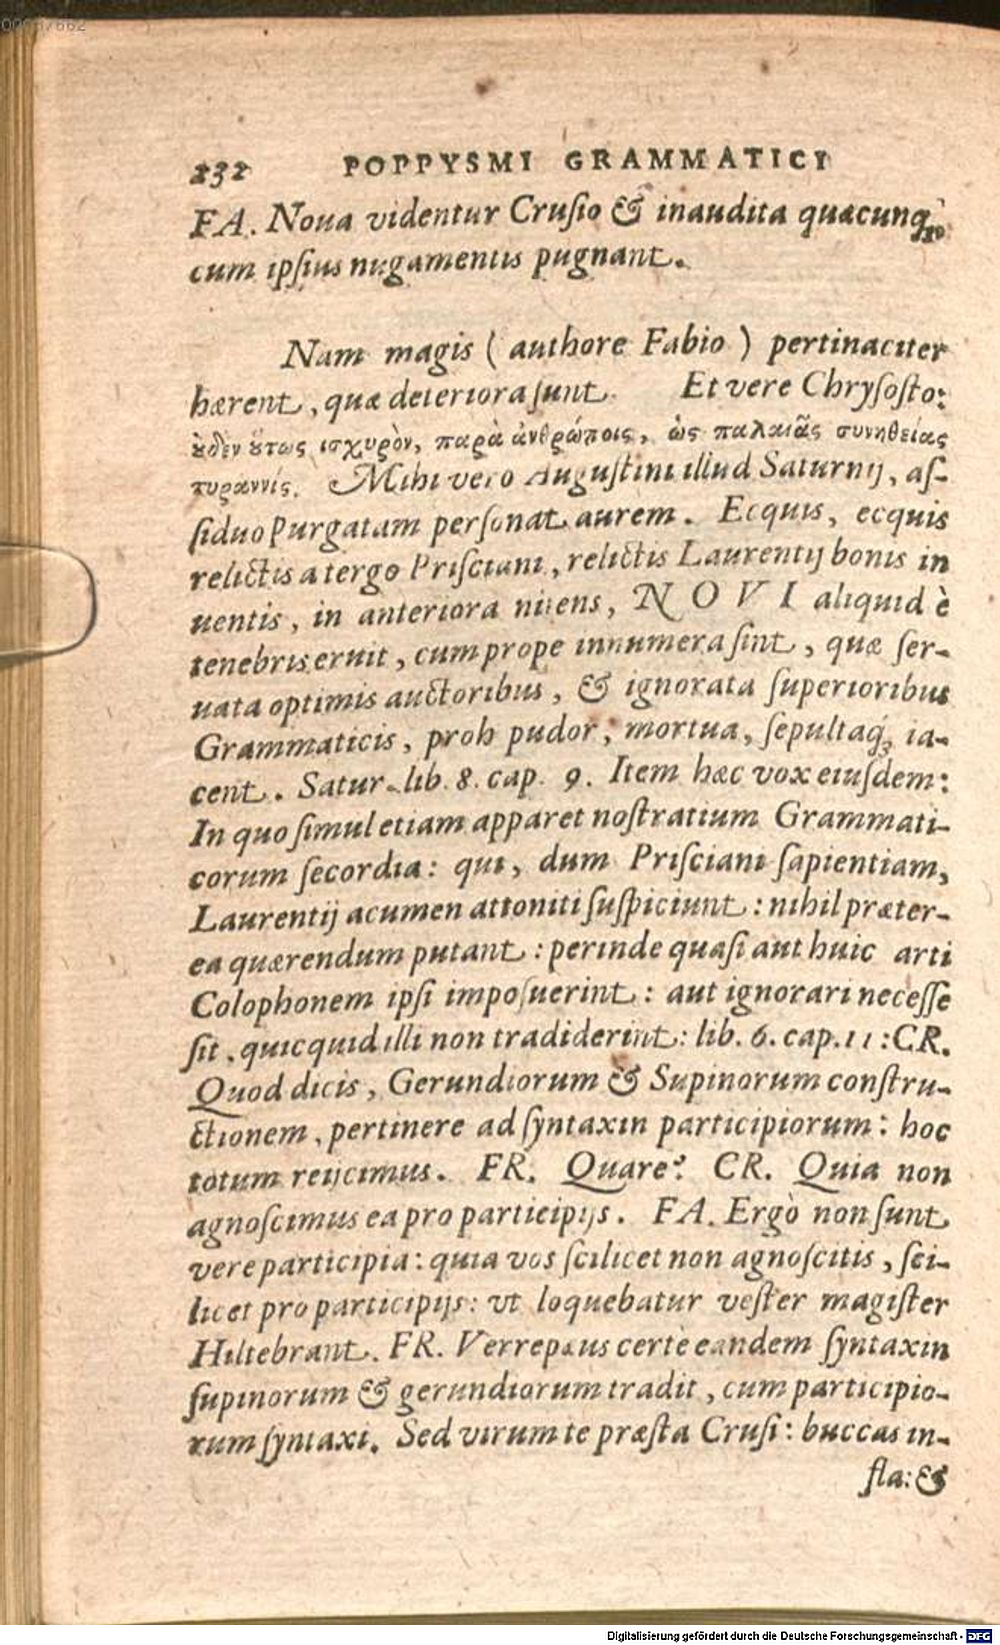 00037662
232 POPPYSMI GRAMMATICI
FA. Noua videntur Crusio & inaudita quæcunq;
cum ipsius nugamentis pugnant.
Nam magis ( authore Fabio ) pertinaciter
hærent, quæ deteriora sunt. Et vere Chrysosto:
ȣ̓δὲν ȣ̔́τως ισχυρὸν, παρὰ ἀνθρώποις, ὡς παλαιᾶς συνηθείας
τυραννίς. Mihi vero Augustini illud Saturnij, as-
siduo purgatam personat aurem. Ecquis, ecquis
relictis a tergo Prisciani, relictis Laurentij bonis in
uentis, in anteriora nitens, NOVI aliquid è
tenebris eruit, cum prope innumera sint, quæ ser-
uata optimis auctoribus, & ignorata superioribus
Grammaticis, proh pudor, mortua, sepultaq; ia-
cent. Satur. lib. 8. cap. 9. Item hæc vox eiusdem:
In quo simul etiam apparet nostratium Grammati-
corum secordia: qui, dum Prisciani sapientiam,
Laurentij acumen attoniti suspiciunt: nihil præter-
ea quærendum putant: perinde quasi aut huic arti
Colophonem ipsi imposuerint: aut ignorari necesse
sit, quicquid illi non tradiderint: lib. 6. cap. 11: CR.
Quod dicis, Gerundiorum & Supinorum constru-
ctionem, pertinere ad syntaxin participiorum: hoc
totum reijcimus. FR. Quare? CR. Quia non
agnoscimus ea pro participijs. FA. Ergò non sunt
vere participia: quia vos scilicet non agnoscitis, sci-
licet pro participijs: vt loquebatur vester magister
Hiltebrant. FR. Verrepæus certè eandem syntaxin
supinorum & gerundiorum tradit, cum participio-
rum syntaxi. Sed virum te præsta Crusi: buccas in-
fla: &
Digitalisierung gefördert durch die Deutsche Forschungsgemeinschaft - DFG